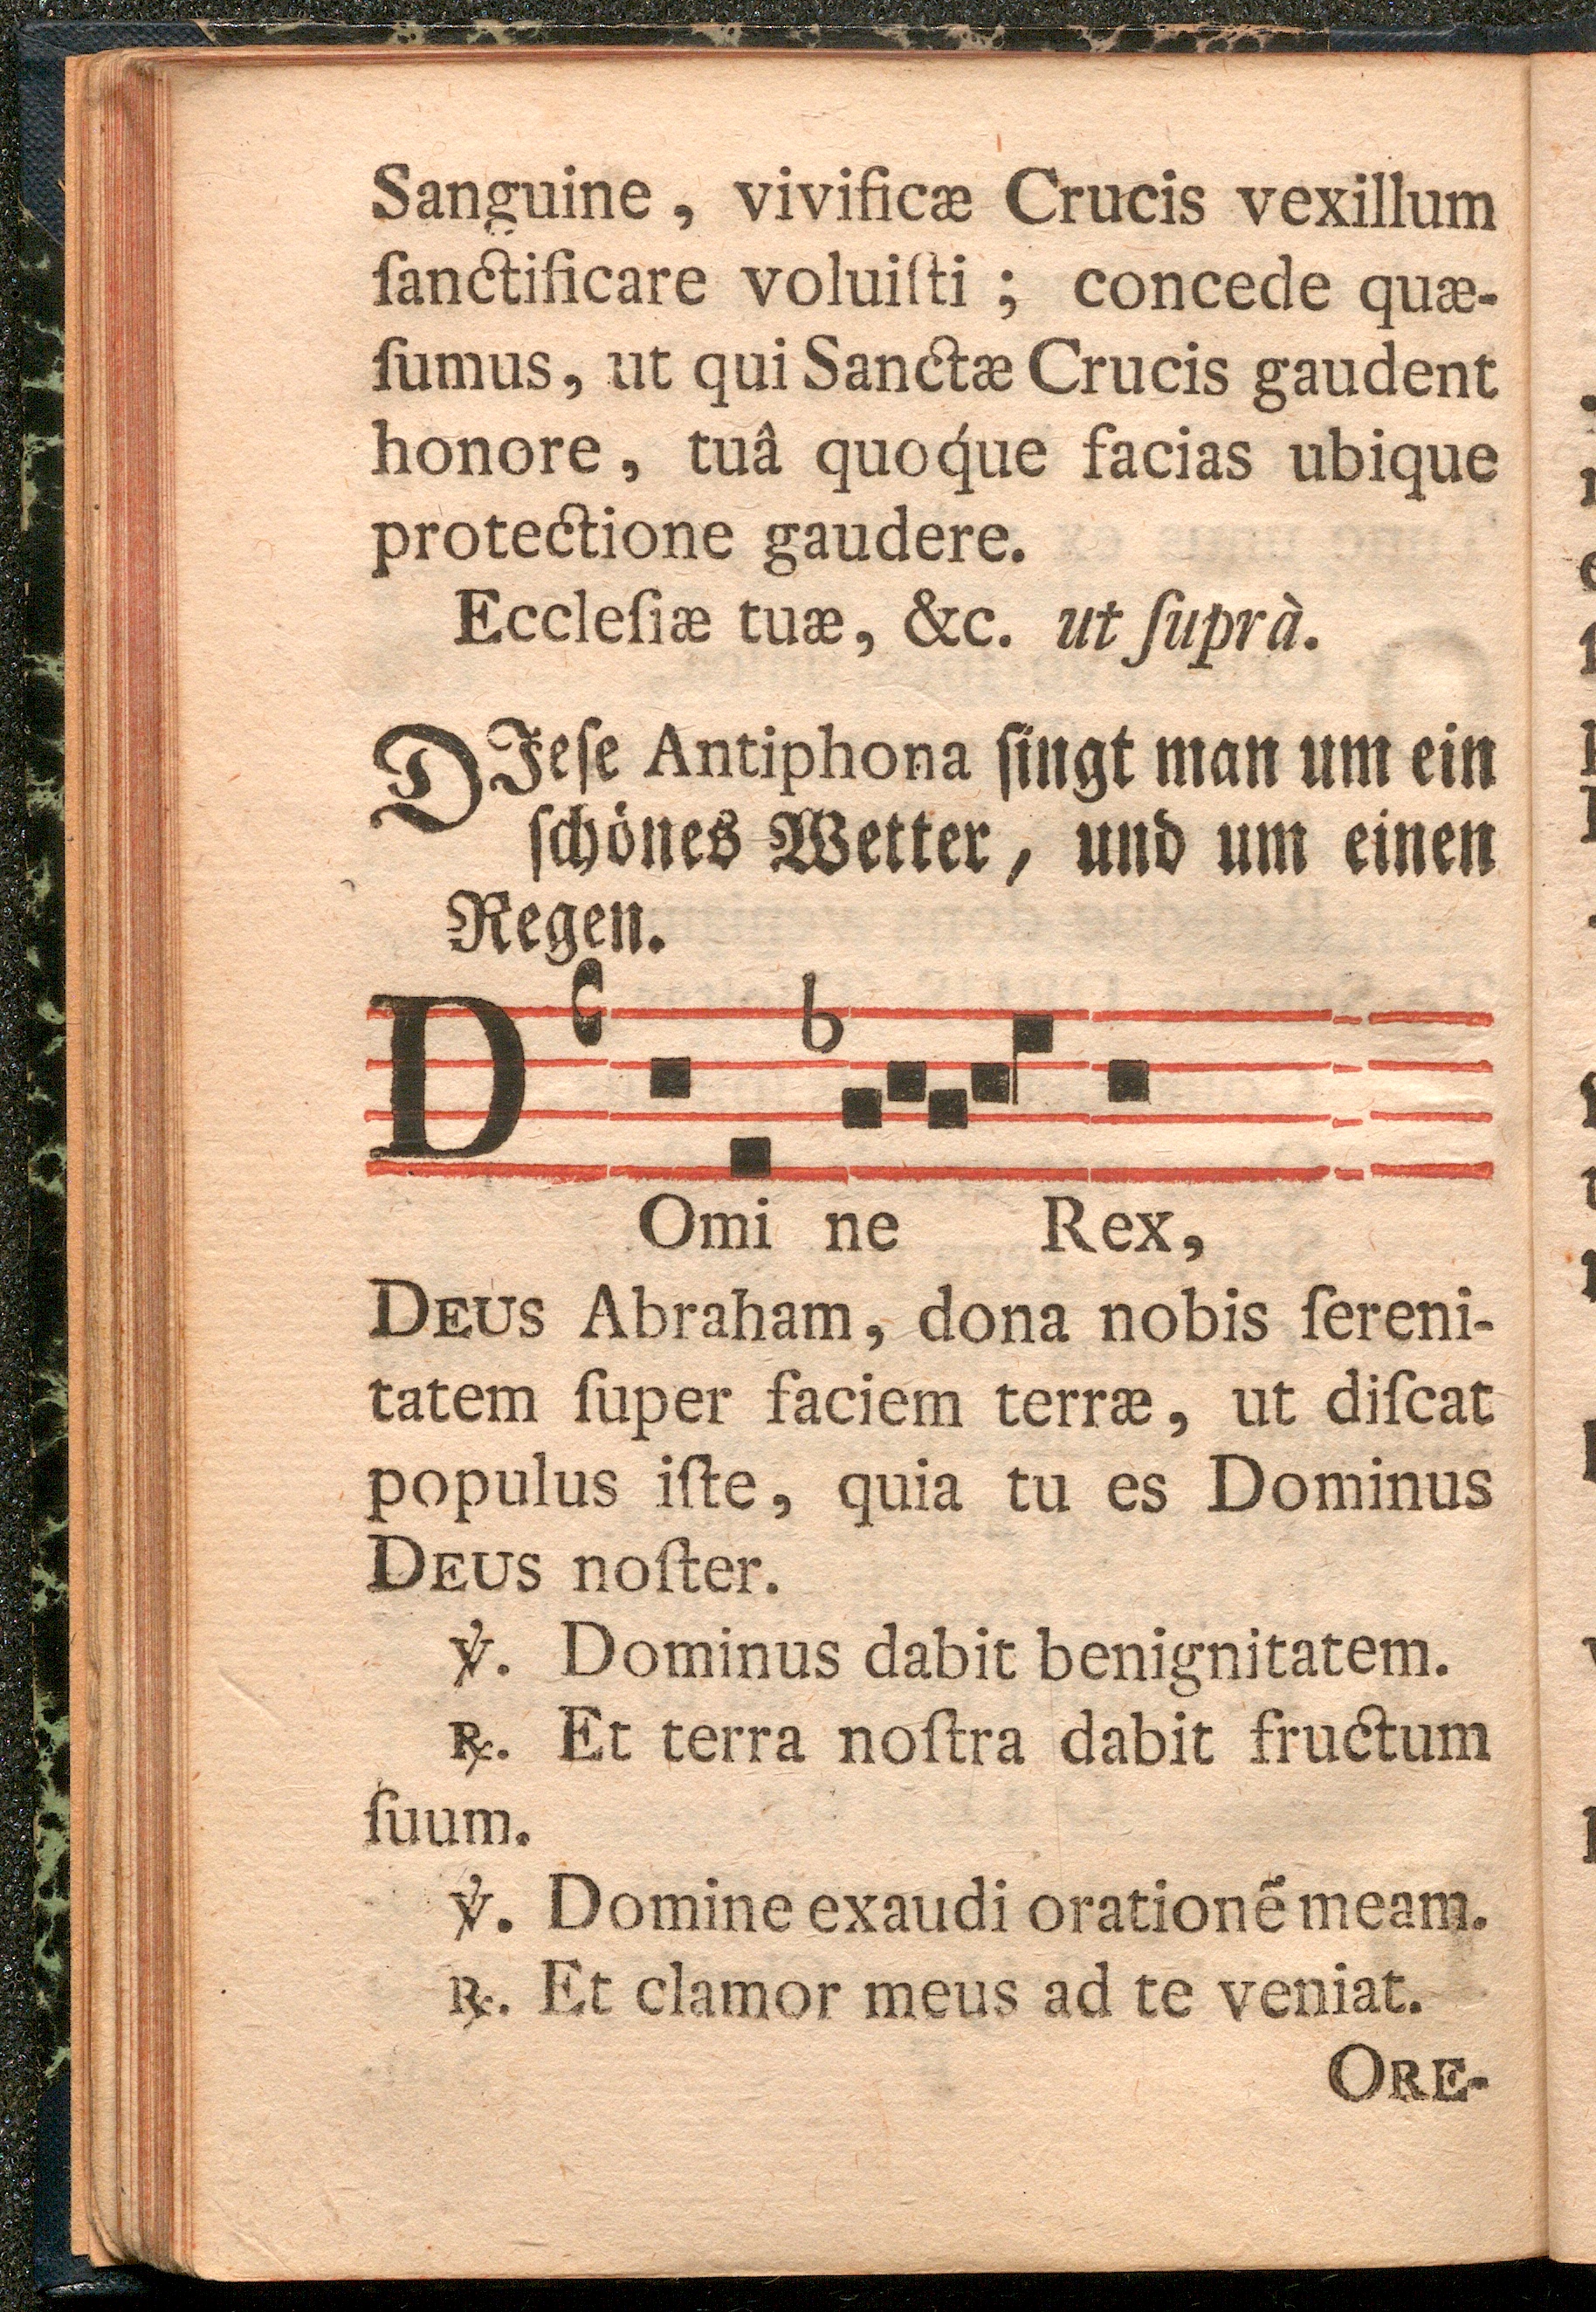 Sanguine, vivificæ Crucis vexillum
ſanctificare voluiſti; concede quæ-
ſumus, ut qui Sanctæ Crucis gaudent
honore, tuâ quoq́ue facias ubique
protectione gaudere.
Eccleſiæ tuæ, &c. ut ſuprà.
DIeſe Antiphona ſingt man um ein
ſchönes Wetter, und um einen
Regen.
DOmi ne Rex,
DEUS Abraham, dona nobis ſereni-
tatem ſuper faciem terræ, ut diſcat
populus iſte, quia tu es Dominus
DEUS noſter.
℣. Dominus dabit benignitatem.
℟. Et terra noſtra dabit fructum
ſuum.
℣. Domine exaudi orationẽ meam.
℟. Et clamor meus ad te veniat.
ORE-